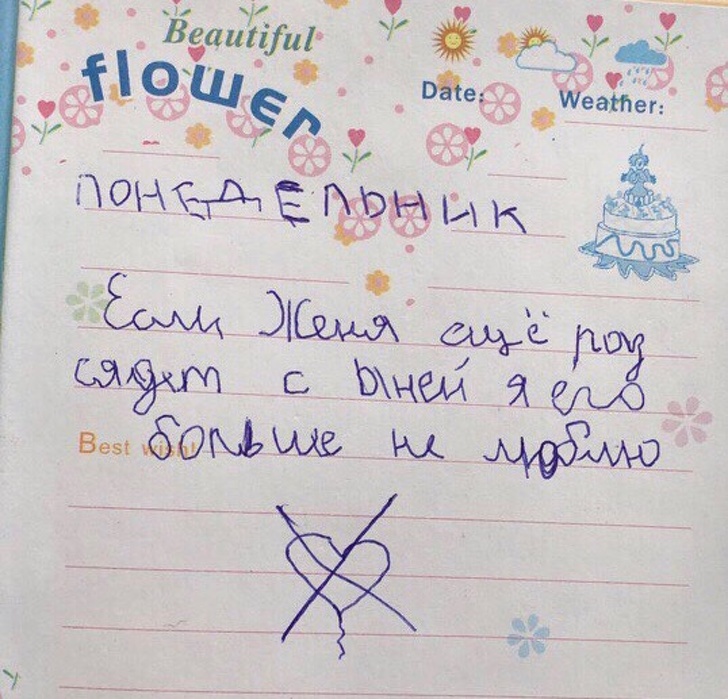 Beautiful
flower
Date:
Weather:
ПОНЕДЕЛЬНИК
Если Женя ещё роз
сядет с ыней я его
Best wish!
больше не люблю